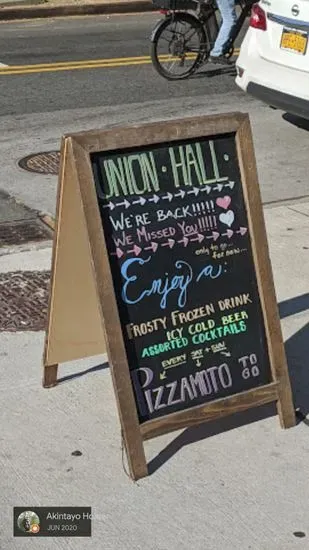 UNION·HALL·
WE'RE BACK!!!!!
WE MISSED YOU!!!!!
only to go...
for now...
Enjoy a:
FROSTY FROZEN DRINK
ICY COLD BEER
ASSORTED COCKTAILS
EVERY SAT + SUN
PIZZAMOTO TO
GO
Akintayo
JUN 2020